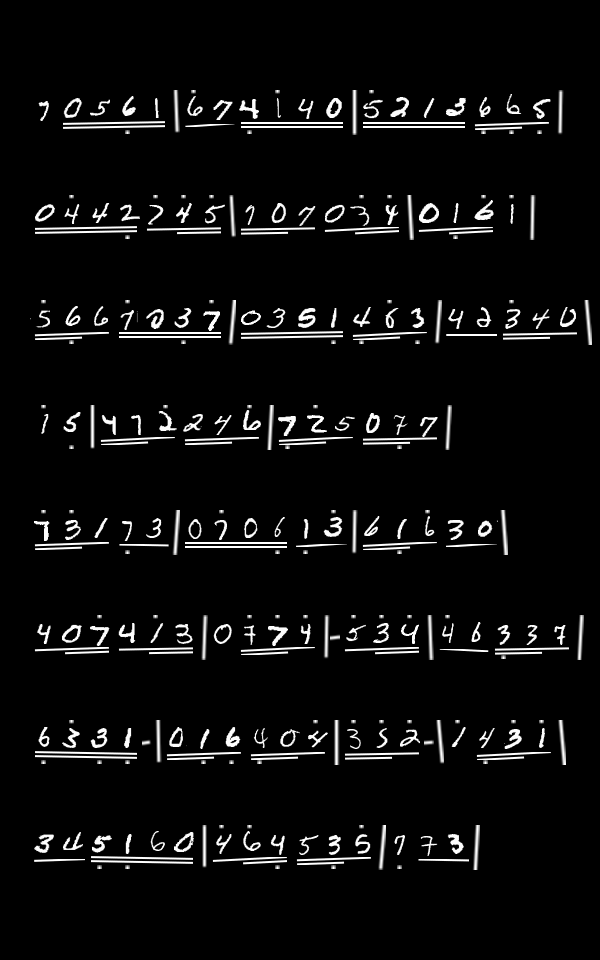 7 0 5 6 1 | 6 7 4 1 4 0 | 5 2 1 3 6 6 5 |
0 4 4 2 2 4 5 | 7 0 7 0 3 4 | 0 1 6 1 |
5 6 6 7 0 3 7 | 0 3 5 1 4 6 3 | 4 2 3 4 0 |
1 5 | 4 7 2 2 4 6 | 7 2 5 0 7 7 |
7 3 1 7 3 | 0 7 0 6 1 3 | 6 1 6 3 0 |
4 0 7 4 1 3 | 0 7 7 4 | - 5 3 4 | 4 6 3 3 7 |
6 3 3 1 - | 0 1 6 4 0 4 | 3 5 2 - | 1 4 3 1 |
3 4 5 1 6 0 | 4 6 4 5 3 5 | 7 7 3 |